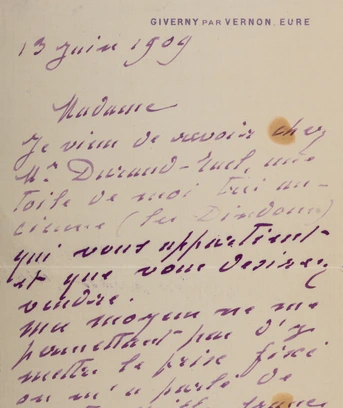 GIVERNY PAR VERNON. EURE
13 juin 1909
Madame
Je viens de revoir chez
Mr Durand-Ruel, une
toile de moi très an-
cienne (les Dindons)
qui vous appartient
et que vous desirez
vendre.
mes moyens ne me
permettant pas d'y
mettre le prix fixé
on m'a parlé de
mille francs